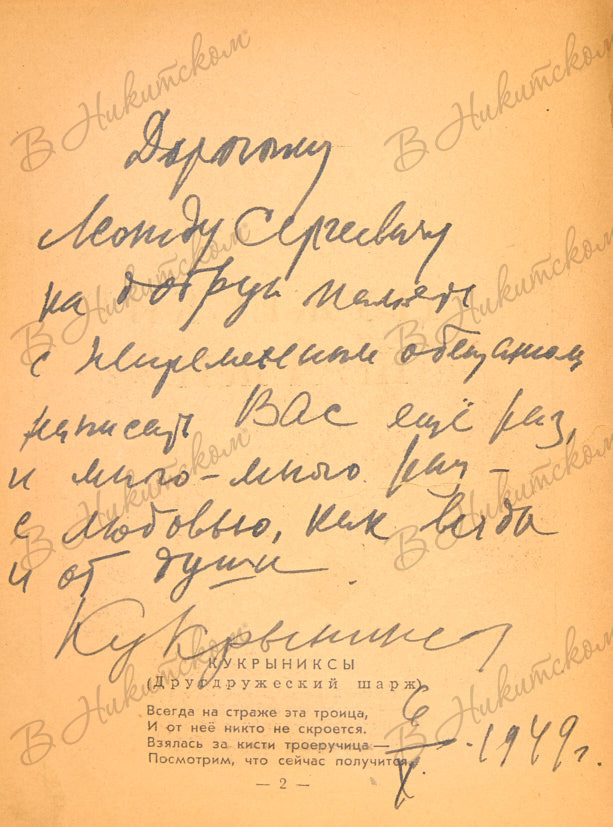 В Никитском
В Никитском
Дорогому
Леониду Сергеевичу
на добрую память
В Никитском
В Никитском
с непременным обещанием
написать Вас ещё раз,
и много-много раз –
В Никитском
В Никитском
с любовью, как всегда
и от души.
Кукрыниксы
КУКРЫНИКСЫ
(Друодружеский шарж)
В Никитском
В Никитском
Всегда на страже эта троица,
И от неё никто не скроется.
Взялась за кисти троеручица —
Посмотрим, что сейчас получится.
6/X. 1949 г.
— 2 —